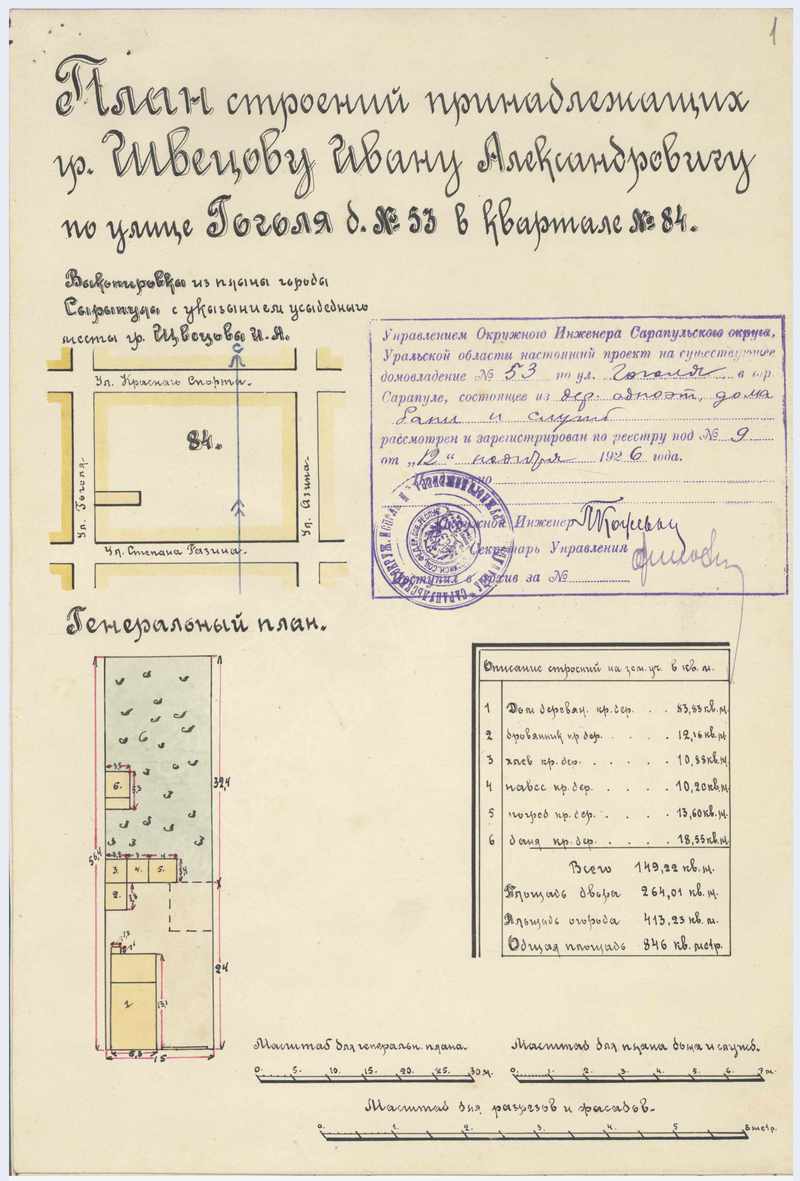 1
План строений принадлежащих
гр. Швецову Ивану Александровичу
по улице Гоголя д. № 53 в квартале № 84.
Выкопировка из плана города
Сарапула с указанием усадебного
места гр. Швецова И.А.
С
Ул. Краснаго Спорта.
84.
Ул. Гоголя.
Ул. Азина.
Ул. Степана Разина.
Управлением Окружного Инженера Сарапульского округа,
Уральской области настоящий проект на существующее
домовладение № 53 по ул. Гоголя в гор.
Сарапуле, состоящее из дер. одноэт. дома
бани и служб
рассмотрен и зарегистрирован по реестру под № 9
от „12" ноября 1926 года.
Окружной Инженер
Секретарь Управления
Поступил в архив за №
Генеральный план.
6.
32,4
56,4
3. 4. 5.
2.
24
1
6,3
15
Описание строений на зем. уч. в кв. м.
1 Дом деревян. кр. дер. . . 83,83 кв. м.
2 дровянник кр. дер. . . . . 12,16 кв. м.
3 хлев кр. дер. . . . . . 10,88 кв. м.
4 навес кр. дер. . . . . 10,20 кв. м.
5 погреб кр. дер. . . . . 13,60 кв. м.
6 баня кр. дер. . . . . 18,55 кв. м.
Всего 149,22 кв. м.
Площадь двора 264,01 кв. м.
Площадь огорода 413,23 кв. м.
Общая площадь 846 кв. метр.
Масштаб для генеральн. плана.
0. 5. 10. 15. 20. 25. 30 м.
Масштаб для плана дома и служб.
0. 1. 2. 3. 4. 5. 6. 7 м.
Масштаб для разрезов и фасадов.
0. 1. 2. 3. 4. 5 6 метр.